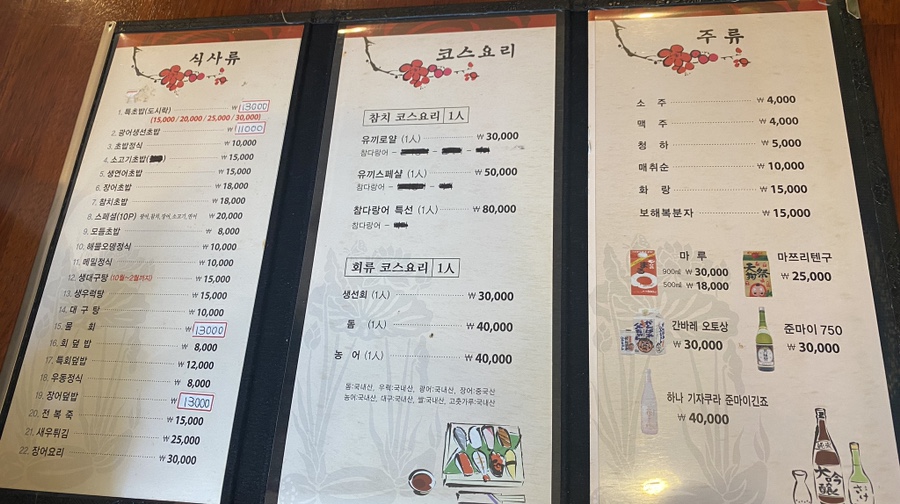 식사류
1. 특초밥(도시락) ₩ 13000
(15,000 / 20,000 / 25,000 / 30,000)
2. 광어생선초밥 ₩ 11000
3. 초밥정식 ₩ 10,000
4. 소고기초밥( ) ₩ 15,000
5. 생연어초밥 ₩ 15,000
6. 장어초밥 ₩ 18,000
7. 참치초밥 ₩ 18,000
8. 스페셜(10P) 광어,참치,장어,소고기,연어 ₩ 20,000
9. 모듬초밥 ₩ 8,000
10. 해물오뎅정식 ₩ 10,000
11. 메밀정식 ₩ 10,000
12. 생대구탕 (10월~2월까지) ₩ 15,000
13. 생우럭탕 ₩ 15,000
14. 대 구 탕 ₩ 10,000
15. 물 회 ₩ 13000
16. 회 덮 밥 ₩ 8,000
17. 특회덮밥 ₩ 12,000
18. 우동정식 ₩ 8,000
19. 장어덮밥 ₩ 13000
20. 전 복 죽 ₩ 15,000
21. 새우튀김 ₩ 25,000
22. 장어요리 ₩ 30,000
코스요리
참치 코스요리 1人
유끼로얄 (1人) ₩ 30,000
참다랑어 -
유끼스페샬 (1人) ₩ 50,000
참다랑어 -
참다랑어 특선 (1人) ₩ 80,000
참다랑어 -
회류 코스요리 1人
생선회 (1人) ₩ 30,000
돔 (1人) ₩ 40,000
농 어 (1人) ₩ 40,000
돔:국내산, 우럭:국내산, 광어:국내산, 장어:중국산
농어:국내산, 대구:국내산, 쌀:국내산, 고춧가루:국내산
주류
소 주 ₩ 4,000
맥 주 ₩ 4,000
청 하 ₩ 5,000
매취순 ₩ 10,000
화 랑 ₩ 15,000
보해복분자 ₩ 15,000
마 루
900㎖ ₩ 30,000
500㎖ ₩ 18,000
마쯔리텐구
₩ 25,000
간바레 오토상
₩ 30,000
준마이 750
₩ 30,000
하나 기자쿠라 준마이긴죠
₩ 40,000
大吟醸